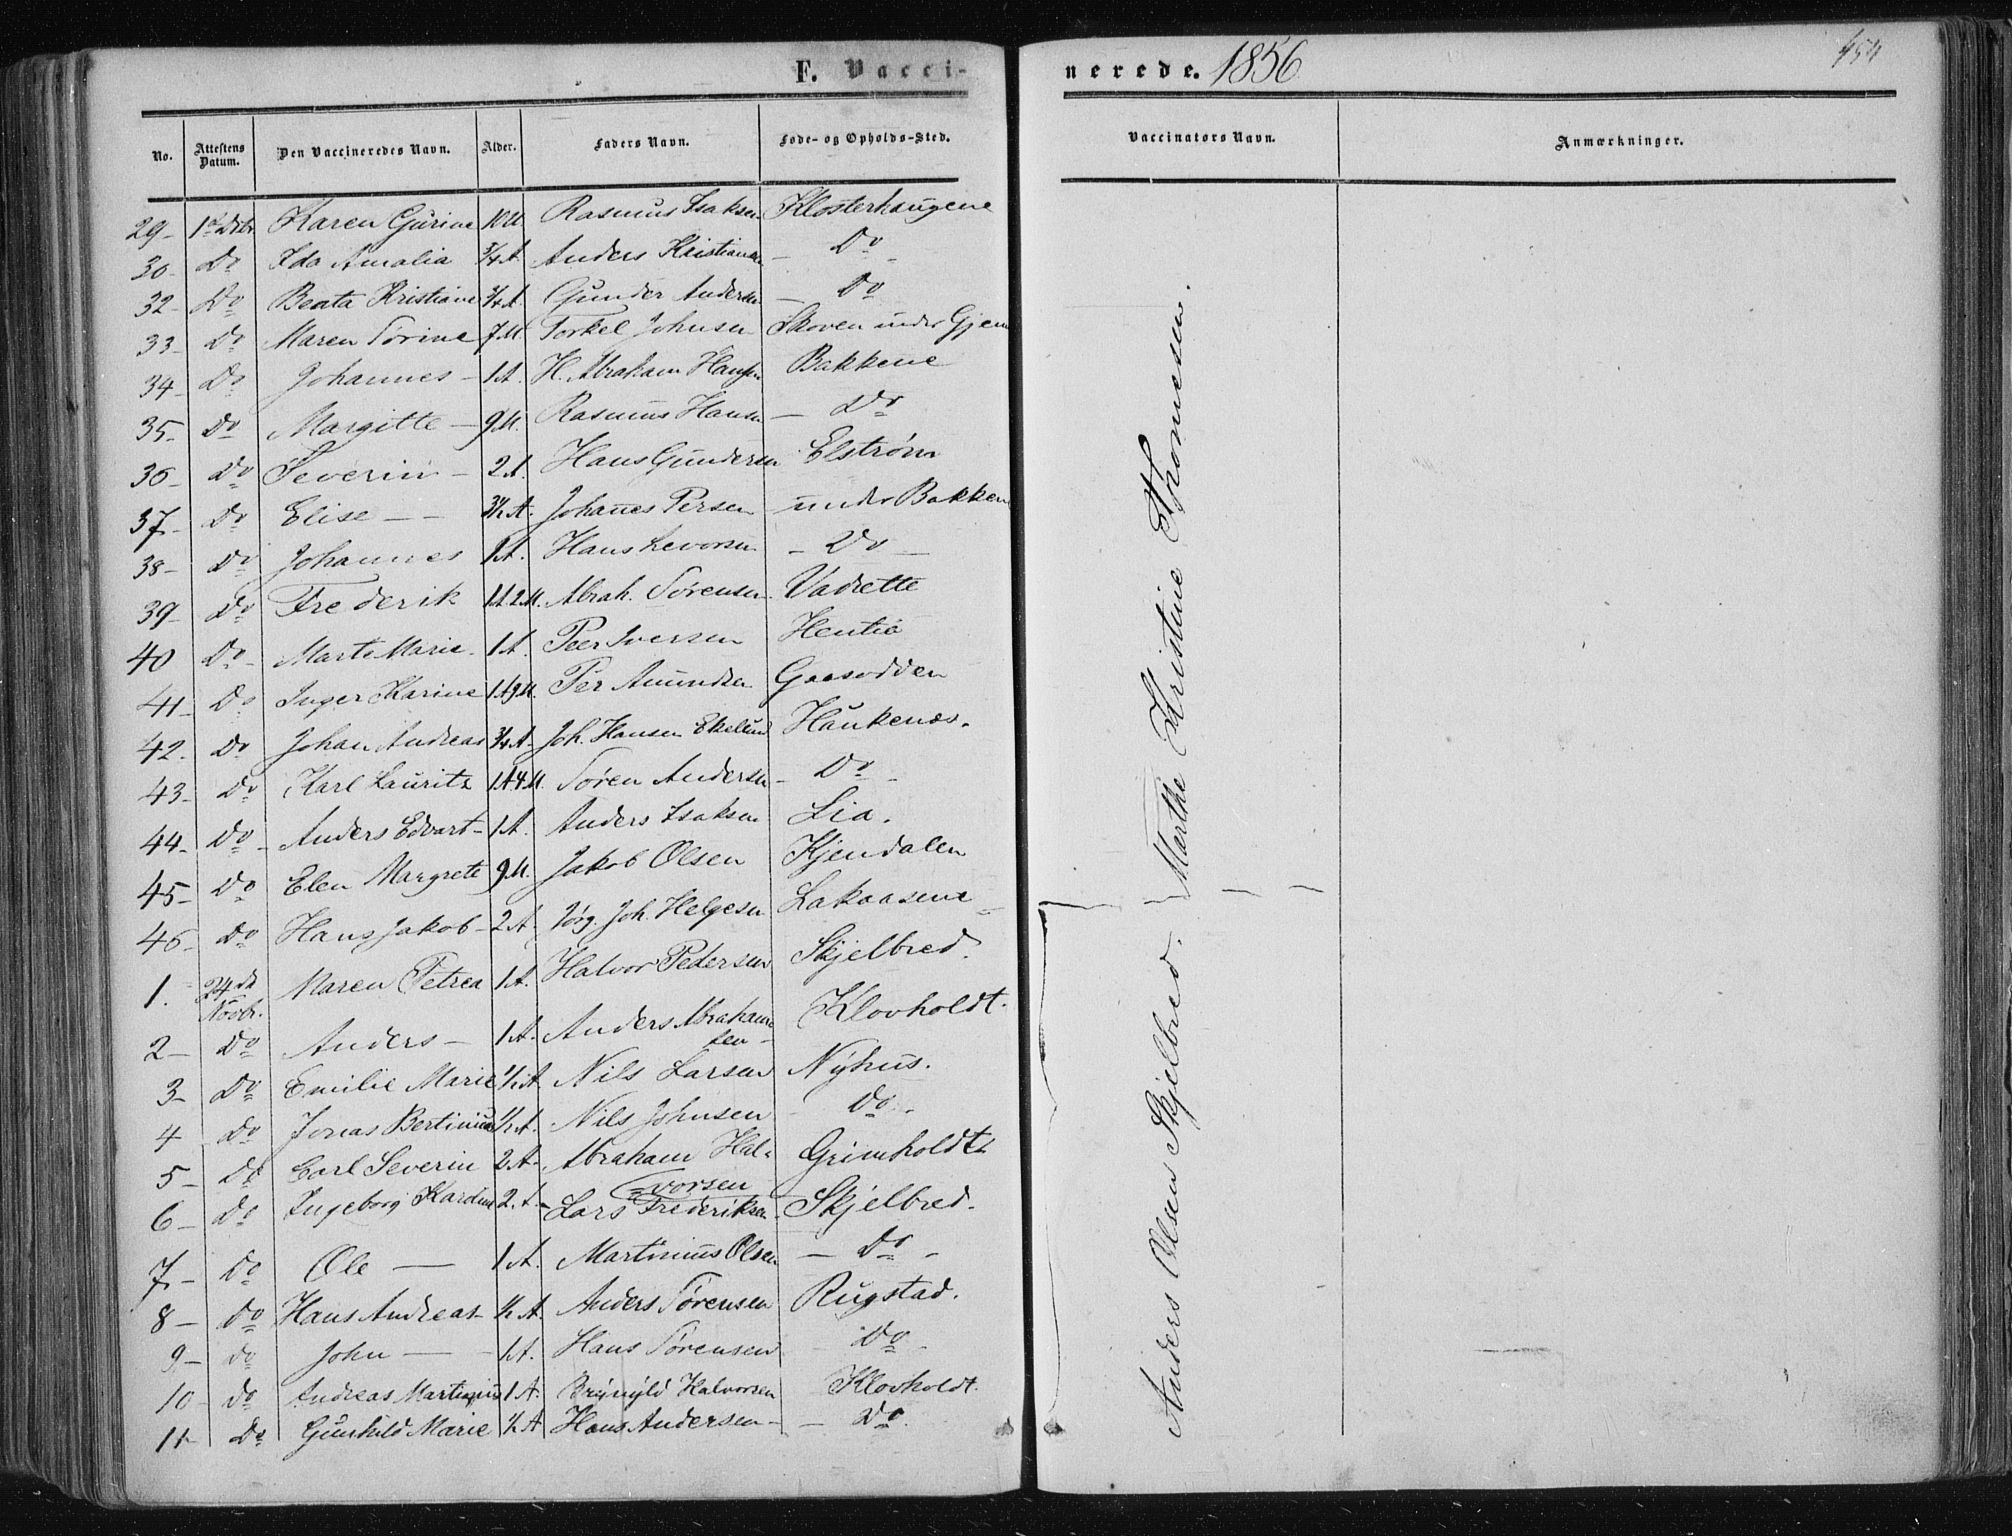 F. Vacci-
nerede. 1856
454
No. Attestens Datum. Den Vaccineredes Navn. Alder. Faders Navn. Føde- og Opholds-Sted. Vaccinators Navn. Anmærkninger.
29- Karen Gurine 10M Rasmus Isaksen Klosterhaugene
30- Do Ida Amalia 3/4 A. Anders Kristiansen - Do -
32- Do Beata Kristiane 3/4 A. Gunder Andersen - Do
33- Do Maren Tørine 7M. Torkel Johnsen Skoven under Gjem
34- Do Johannes - 1A. H. Abraham Hansen Bakkene
35- Do Margitte - 9M. Rasmus Hansen - Do
36- Do Severin - 2A. Hans Gundersen Elstrøm
37- Do Elise - - A. Johañes Persen under Bakken
38- Do Johannes 1A. Hans Levorsen - Do -
39- Do Frederik 1A.2M. Abrah. Sørensen Vadrette
40 Do - Marte Marie. 1A. Peer Iversen Hentiø
41- Do Inger Karine 1A9M. Per Amundsen Gaasodden
42- Do Johan Andreas 3/4 A. Joh. Hansen Ekelund Haukenæs.
43- Do Karl Lauritz 1A4M. Søren Andersen - Do -
44- Do - Anders Edvart - 1A. Anders Isaksen Lia.
45- Do Elen Margrete 9M. Jakob Olsen Kjendalen
46- Do Hans Jakob - 2A. Jørg. Joh. Helgesen Lakaasene
1. 24de Novbr. Maren Petrea 1A. Halvor Pedersen Skjelbred.
2- Do Anders - 1A. Anders Abraham-
sen - Klovholdt.
3- Do Emilie Marie 1/2 A. Nils Larsen Nyhus.
4 Do Jonas Bertinius 1/2 A. Nils Johnsen - Do -
5- Do Carl Severin 2A. Abraham Hal-
=vorsen Grimholdt
6- Do Ingeborg 2A. - Lars Frederiksen Skjelbred.
7- Do Ole - 1A. Martinius Olsen - Do -
8- Do Hans Andreas - 1/2 A. Anders Sørensen Rugstad.
9- Do John - 1A. Hans Sørensen - Do -
10- Do Andreas Martinius 1A. Halvorsen Klovholdt.
11- Do Gunhild Marie 1/2 A Hans Andersen - - Do.
Marthe Kristine Thomesen.
Anders Olsen Skjelbred.